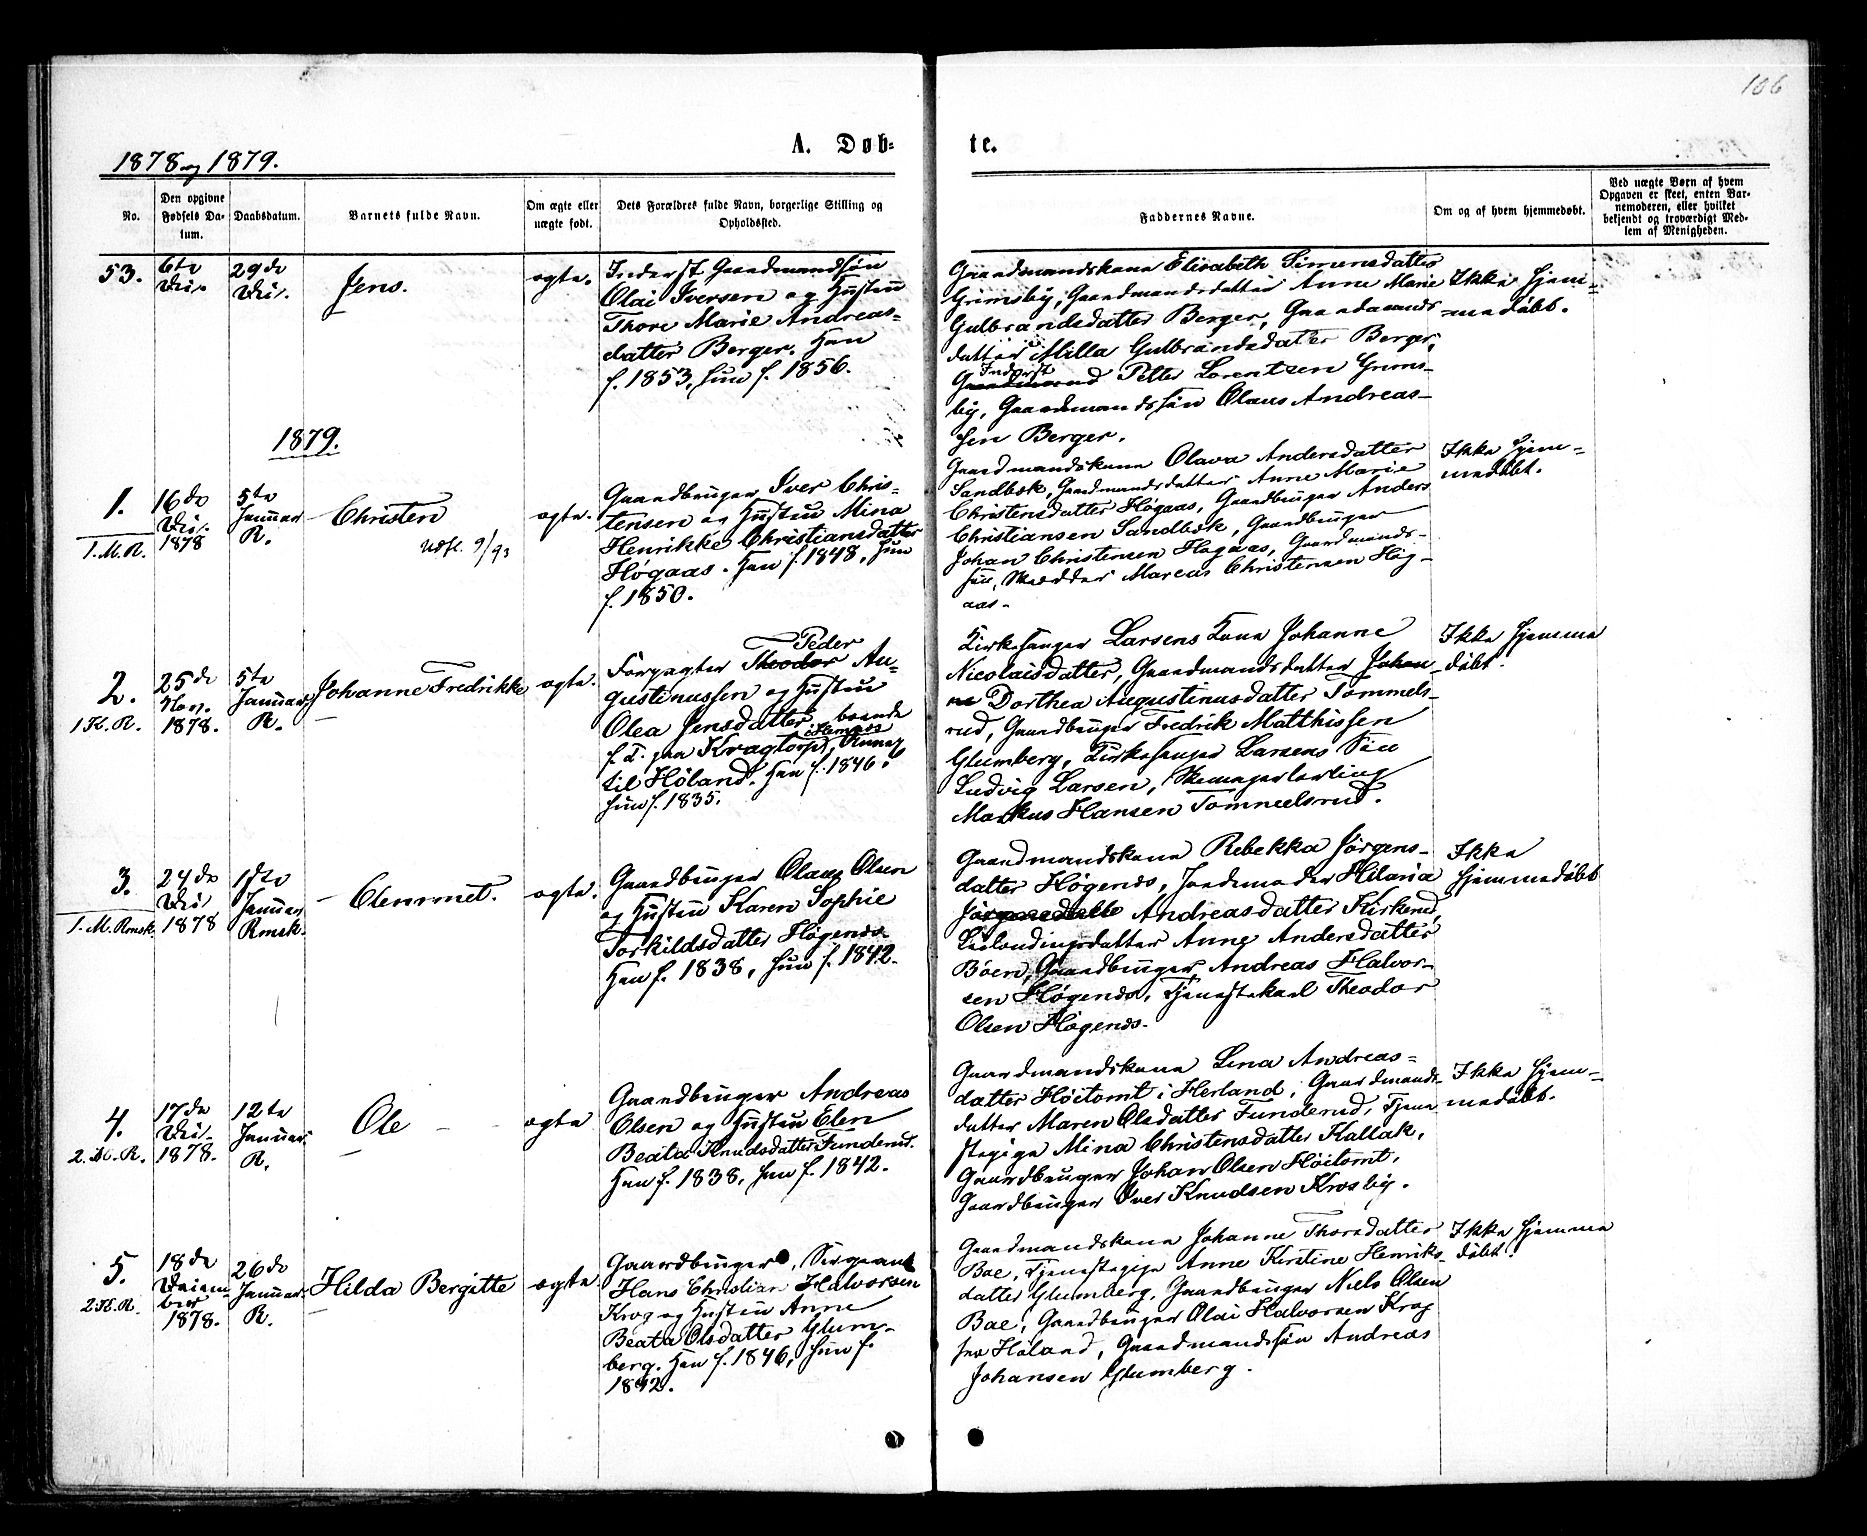 106
1878 og 1879.
A. Døb-
te.
No.
Den opgivne
Fødsels Da-
tum.
Daabsdatum.
Barnets fulde Navn.
Om ægte eller
uægte født.
Dets Forældres fulde Navn, borgerlige Stilling og
Opholdssted.
Faddernes Navne.
Om og af hvem hjemmedøbt.
Ved uægte Børn af hvem
Opgaven er skeet, enten Bar-
nemoderen, eller hvilket
bekjendt og troværdigt Med-
lem af Menigheden.
53.
6te
Dei.
29de
Dei.
Jens.
ægte.
Inderst, Gaardmandssøn
Olai Iversen og Hustru
Thore Marie Andreas-
datter Berger. Han
f. 1853, hun f. 1856.
Gaardmandskone Elisabeth Simensdatter
Grimsby, Gaardmandsdatter Anne Marie
Gulbrandsdatter Berger, Gaardmands-
datter Milla Gulbrandsdatter Berger,
Inderst
Gaardmand Petter Lorentsen Grims-
by, Gaardmandssøn Olaus Andreas-
sen Berger.
Ikke hjem-
medøbt.
1879.
1.
1. M. R.
16de
Dei.
1878
5te
Januar
R.
Christen
Udfl. 9/93
ægte.
Gaardbruger Iver Chris-
tensen og Hustru Mina
Henrikke Christiansdatter
Høgaas. Han f. 1848, hun
f. 1850.
Gaardmandskone Olava Andersdatter
Sandbæk, Gaardmandsdatter Anne Marie
Christensdatter Høgaas, Gaardbruger Anders
Christiansen Sandbæk, Gaardbruger
Johan Christensen Høgaas, Gaardmands-
søn, Skrædder Marcus Christensen Høg-
aas.
Ikke hjem-
medøbt.
2.
1 K. R.
25de
Nov.
1878.
5te
Januar
R.
Johanne Fredrikke
ægte.
Peder
Forpagter Theodor Au-
gustinussen og Hustru
Olea Jensdatter, boende
f. T. paa Kragtorp i Hemnæs, Annex
til Høland. Han f. 1846.
hun f. 1835.
Kirkesanger Larsens Kone Johanne
Nicolaisdatter, Gaardmandsdatter Johan-
ne Dorthea Augustinusdatter Tommels-
rud, Gaardbruger Fredrik Matthissen
Glumberg, Kirkesanger Larsens Søn
Ludvig Larsen, Skomagerlærling
Markus Hansen Tommelsrud.
Ikke hjemme
døbt.
3.
1. M. Rmsk.
24de
Dei
1878
1ste
Januar
Rmsk.
Clemmet.
ægte.
Gaardbruger Olaus Olsen
og Hustru Karen Sophie
Torkildsdatter Høgenæs.
Han f. 1838, hun f. 1842.
Gaardmandskone Rebekka Jørgens-
datter Høgenæs, Jordemoder Helaria
Jørgensdatte Andreasdatter Kirkerud,
Leilendingsdatter Anne Andersdatter
Bøen, Gaardbruger Andreas Halvor-
sen Høgenæs, Tjenestekarl Theodor
Olsen Høgenæs.
Ikke
hjemmedøbt
4.
2. K. R.
17de
Dei.
1878.
12te
Januar
R.
Ole
ægte
Gaardbruger Andreas
Olsen og Hustru Elen
Beata Knudsdatter Funderud.
Han f. 1838, hun f. 1842.
Gaardmandskone Lena Andreas-
datter Høitomt i Herland, Gaardmands-
datter Maren Olsdatter Funderud, Tjene
stepige Mina Christensdatter Kallak,
Gaardbruger Johan Olsen Høitomt,
Gaardbruger Iver Knudsen Krosby.
Ikke hjem-
medøbt.
5.
2 K. R.
18de
Decem-
ber
1878.
26de
Januar
R.
Hilda Bergitte
ægte
Gaardbruger, Sergeant
Hans Christian Halvorsen
Krog og Hustru Anne
Beata Olsdatter Glum-
berg. Han f. 1846, hun f.
1842.
Gaardmandskone Johanne Thorsdatter
Boe, Tjenestepige Anne Kirstine Henriks-
datter Glumberg, Gaardbruger Niels Olsen
Boe, Gaardbruger Olai Halvorsen Krog
fra Høland, Gaardmandssøn Andreas
Johansen Glumberg.
Ikke hjemme
døbt.